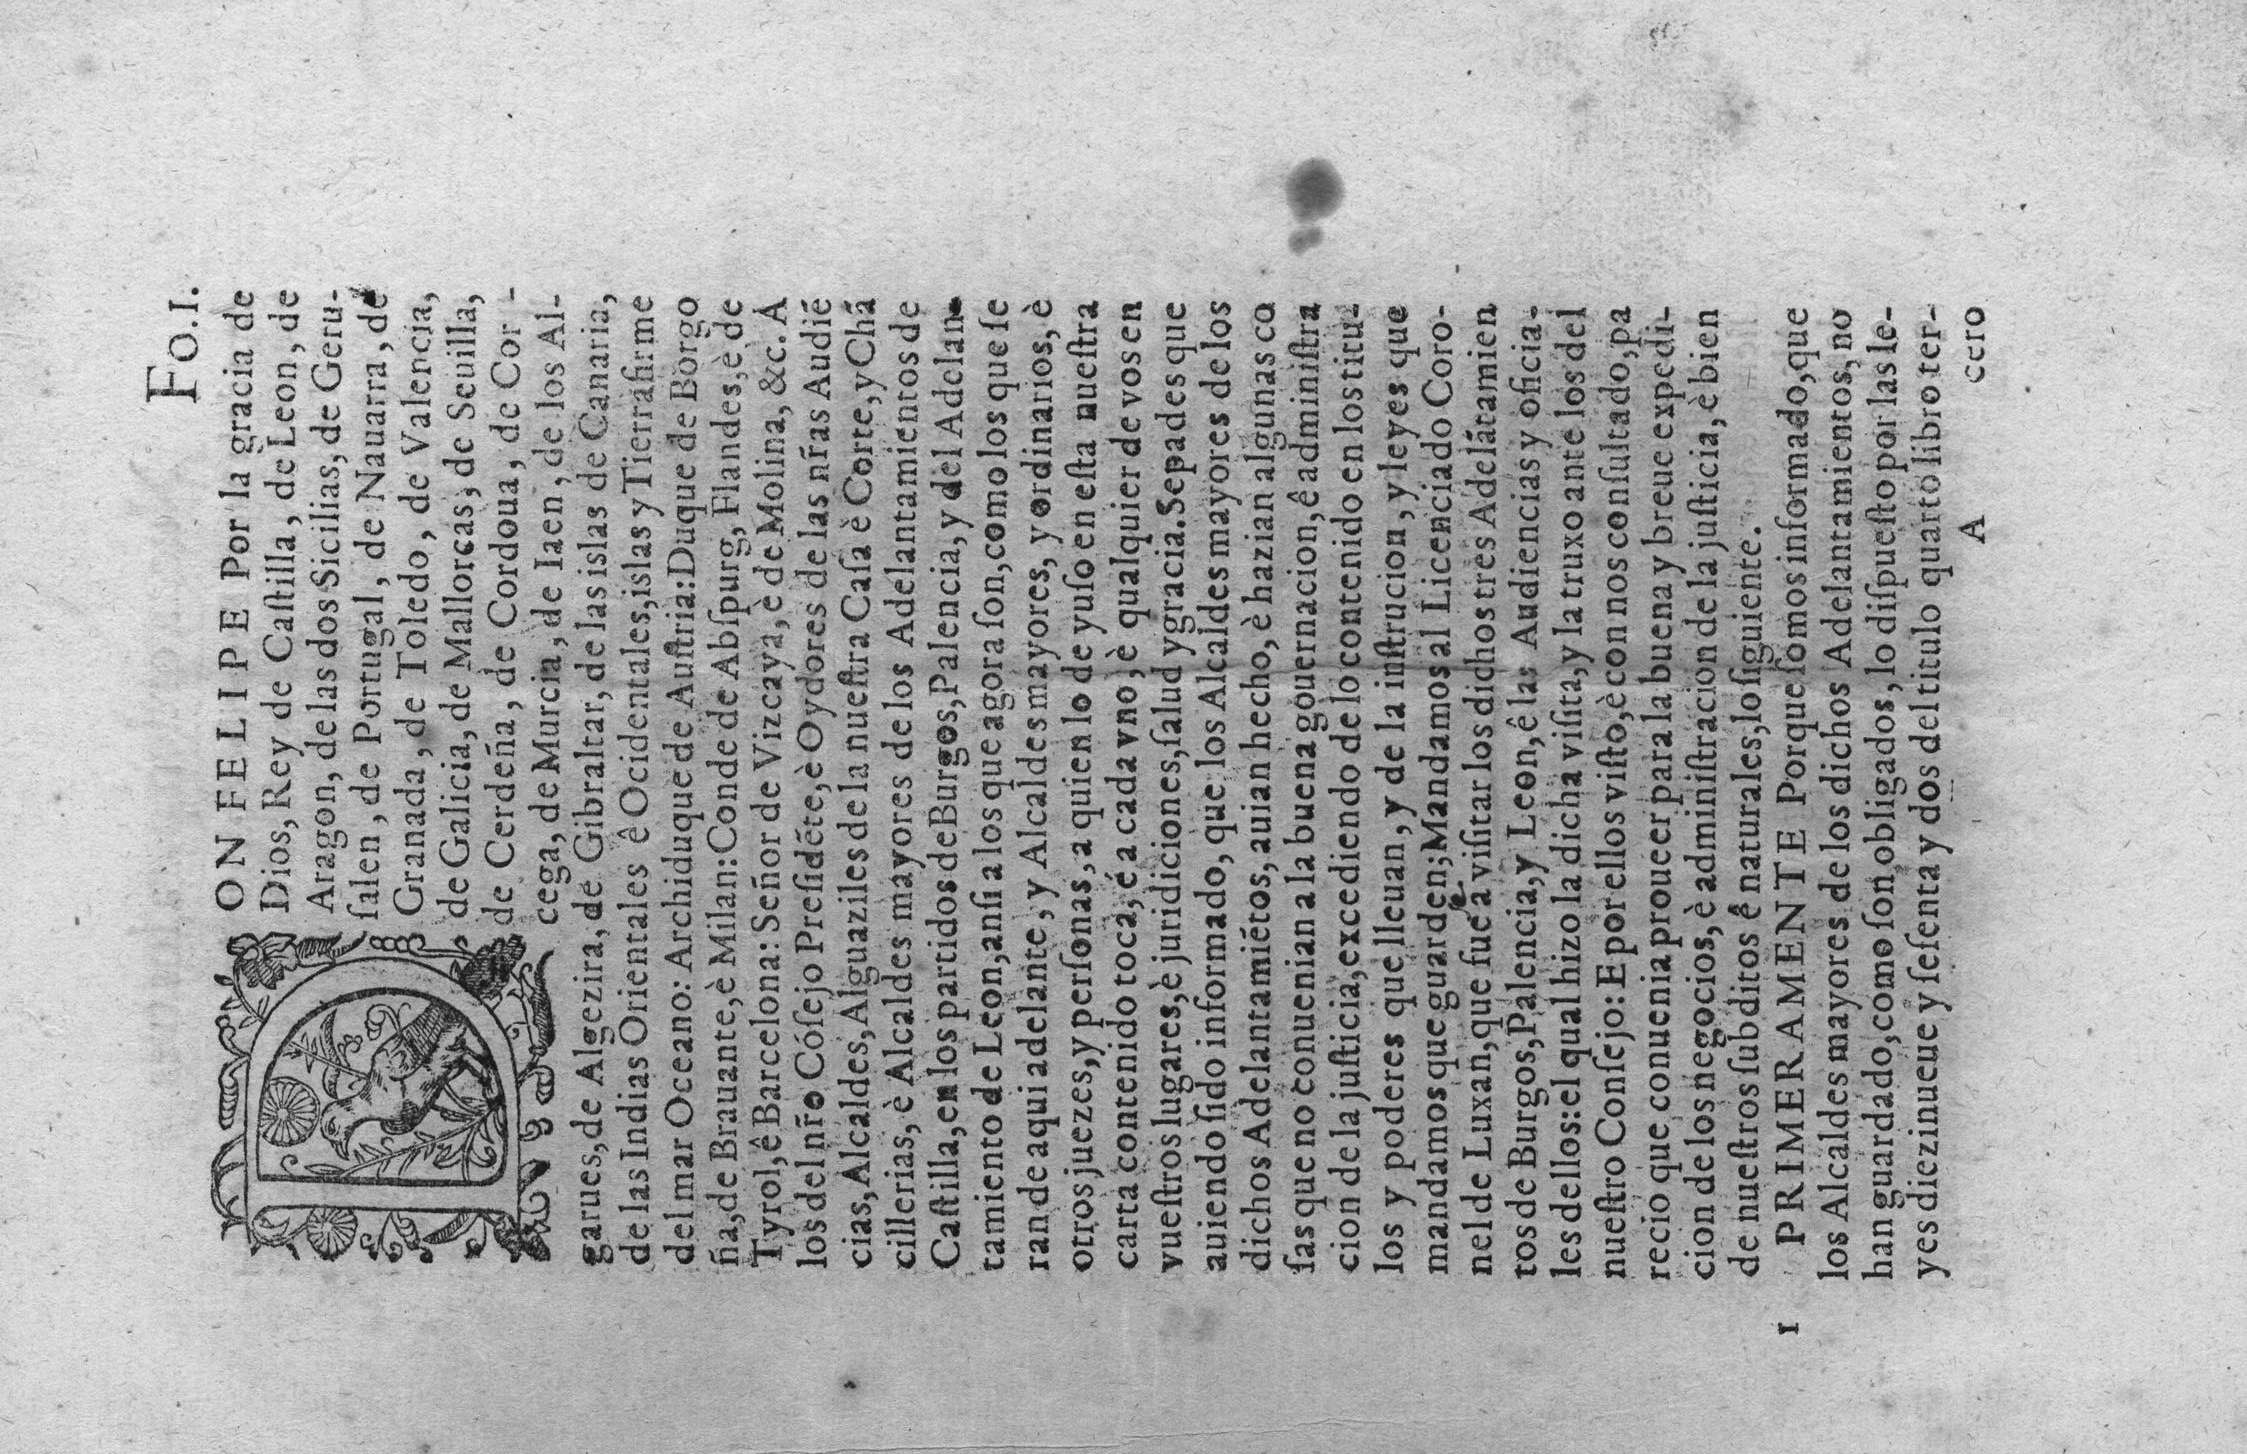 FO.I.
DON FELIPE Por la gracia de
Dios, Rey de Caſtilla, de Leon, de
Aragon, de las dos Sicilias, de Geru-
ſalen, de Portugal, de Nauarra, de
Granada, de Toledo, de Valencia,
de Galicia, de Mallorcas, de Seuilla,
de Cerdeña, de Cordoua, de Cor-
cega, de Murcia, de Iaen, de los Al-
garues, de Algezira, de Gibraltar, de las islas de Canaria,
de las Indias Orientales ê Ocidentales, islas y Tierrafirme
del mar Oceano: Archiduque de Auſtria: Duque de Borgo
ña, de Brauante, è Milan: Conde de Abſpurg, Flandes, è de
Tyrol, ê Barcelona: Señor de Vizcaya, è de Molina, &c. A
los del nr̃o Cóſejo Preſidéte, è Oydores de las nr̃as Audié
cias, Alcaldes, Alguaziles de la nueſtra Caſa è Corte, y Chá
cillerias, è Alcaldes mayores de los Adelantamientos de
Caſtilla, en los partidos de Burgos, Palencia, y del Adelan-
tamiento de Leon, anſi a los que agora ſon, como los que ſe
ran de aqui adelante, y Alcaldes mayores, y ordinarios, è
otros juezes, y perſonas, a quien lo de yuſo en eſta nueſtra
carta contenido toca, é a cada vno, è qualquier de vos en
vueſtros lugares, è juridiciones, ſalud y gracia. Sepades que
auiendo ſido informado, que los Alcaldes mayores de los
dichos Adelantamiétos, auian hecho, è hazian algunas co
ſas que no conuenian a la buena gouernacion, ê adminiſtra
cion de la juſticia, excediendo de lo contenido en los titu-
los y poderes que lleuan, y de la inſtrucion, y leyes que
mandamos que guarden; Mandamos al Licenciado Coro-
nel de Luxan, que fueſſe a viſitar los dichos tres Adelátamien
tos de Burgos, Palencia, y Leon, ê las Audiencias y oficia-
les dellos: el qual hizo la dicha viſita, y la truxo ante los del
nueſtro Conſejo: E por ellos viſto, è con nos conſultado, pa
recio que conuenia proueer para la buena y breue expedi-
cion de los negocios, è adminiſtracion de la juſticia, è bien
de nueſtros ſubditos ê naturales, lo ſiguiente.
1 PRIMERAMENTE Porque ſomos informado, que
los Alcaldes mayores de los dichos Adelantamientos, no
han guardado, como ſon obligados, lo diſpueſto por las le-
yes diezinueue y ſeſenta y dos del titulo quarto libro ter-
A ccro